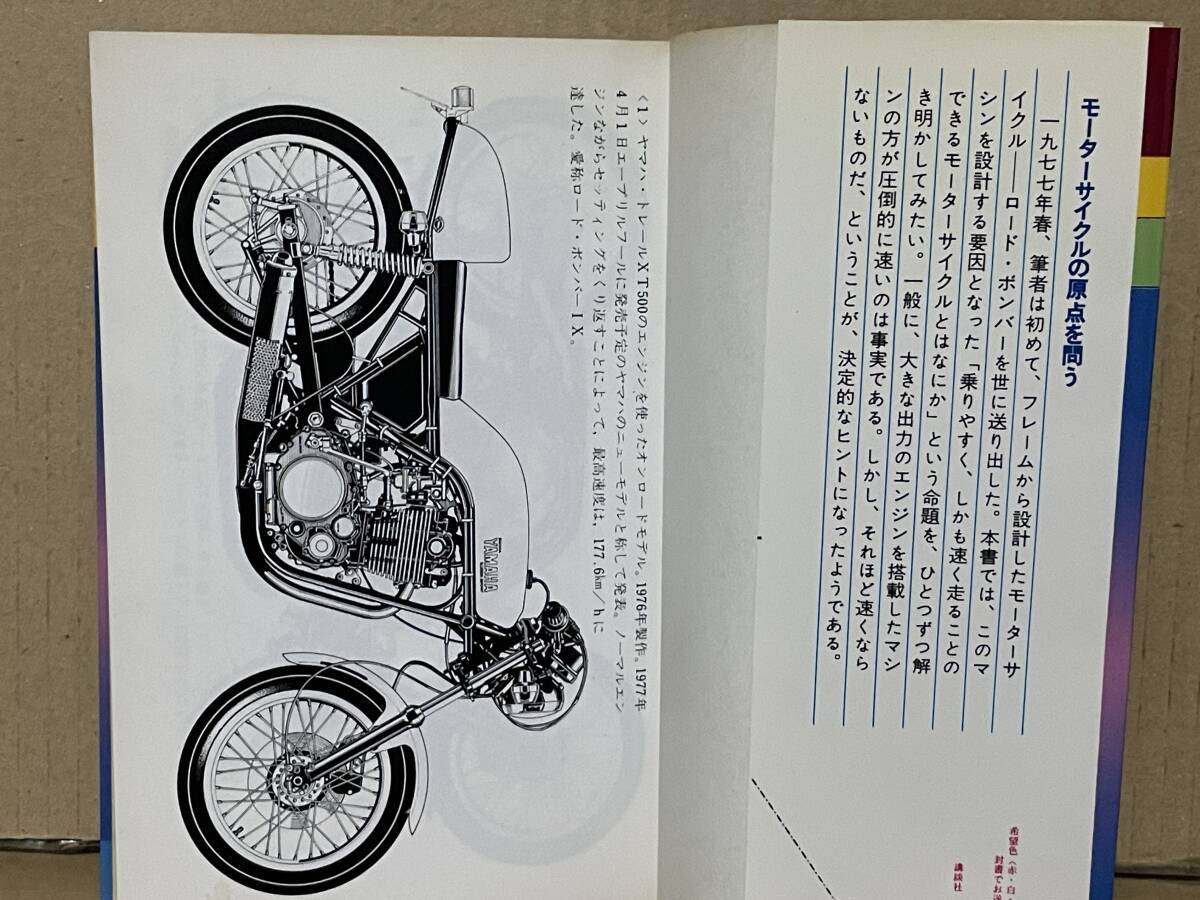 モーターサイクルの原点を問う
一九七七年春、筆者は初めて、フレームから設計したモーターサ
イクル――ロード・ボンバーを世に送り出した。本書では、このマ
シンを設計する要因となった「乗りやすく、しかも速く走ることの
できるモーターサイクルとはなにか」という命題を、ひとつずつ解
き明かしてみたい。一般に、大きな出力のエンジンを搭載したマシ
ンの方が圧倒的に速いのは事実である。しかし、それほど速くなら
ないものだ、ということが、決定的なヒントになったようである。
希望色（赤・白・
封書でお送
講談社
〈1〉ヤマハ・トレールXT500のエンジンを使ったオンロードモデル。1976年製作。1977年
4月1日エープリルフールに発売予定のヤマハのニューモデルと称して発表。ノーマルエン
ジンながらセッティングをくり返すことによって、最高速度は、177.6km/hに
達した。愛称ロード・ボンバーIX。
YAMAHA